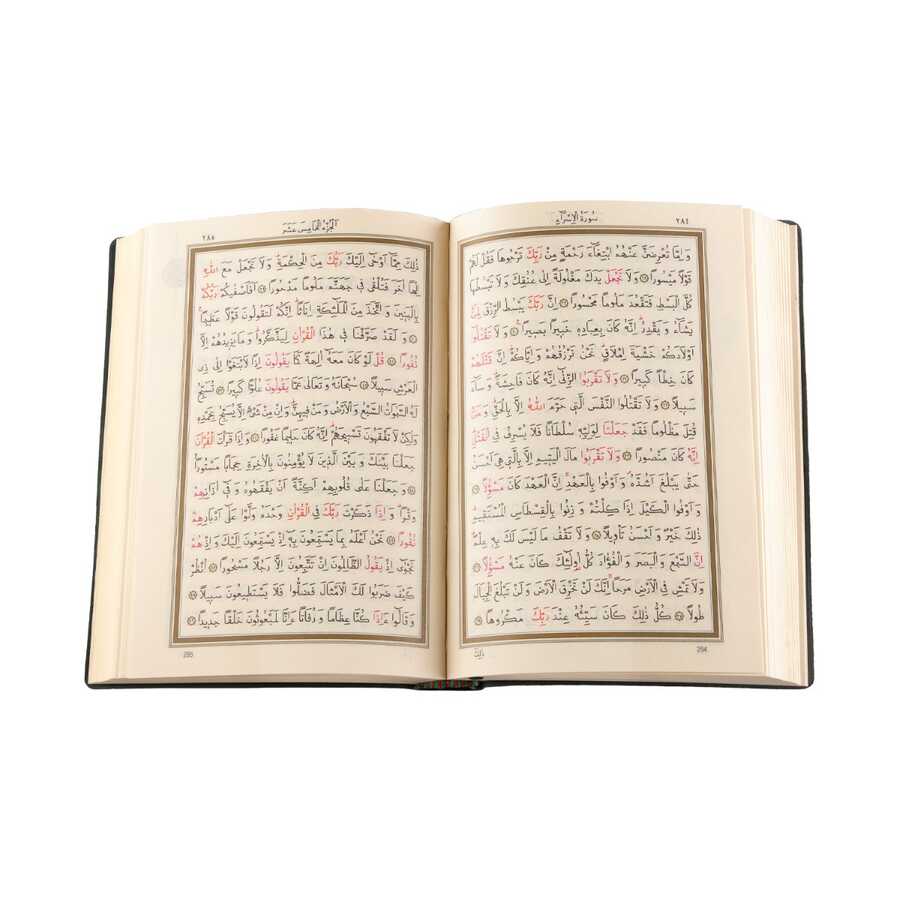 سورة الإسراء
٢٨٤
وَاِمَّا تُعْرِضَنَّ عَنْهُمُ ابْتِغَٓاءَ رَحْمَةٍ مِنْ رَبِّكَ تَرْجُوهَا فَقُلْ لَهُمْ
قَوْلًا مَيْسُورًا ﴿٢٨﴾ وَلَا تَجْعَلْ يَدَكَ مَغْلُولَةً اِلٰى عُنُقِكَ وَلَا تَبْسُطْهَا
كُلَّ الْبَسْطِ فَتَقْعُدَ مَلُومًا مَحْسُورًا ﴿٢٩﴾ اِنَّ رَبَّكَ يَبْسُطُ الرِّزْقَ لِمَنْ
يَشَٓاءُ وَيَقْدِرُ اِنَّهُ كَانَ بِعِبَادِهِ خَبِيرًا بَصِيرًا ﴿٣٠﴾ وَلَا تَقْتُلُٓوا
اَوْلَادَكُمْ خَشْيَةَ اِمْلَاقٍ نَحْنُ نَرْزُقُهُمْ وَاِيَّاكُمْ اِنَّ قَتْلَهُمْ
كَانَ خِطْـًٔا كَبِيرًا ﴿٣١﴾ وَلَا تَقْرَبُوا الزِّنٰٓى اِنَّهُ كَانَ فَاحِشَةً وَسَٓاءَ
سَبِيلًا ﴿٣٢﴾ وَلَا تَقْتُلُوا النَّفْسَ الَّتِي حَرَّمَ اللّٰهُ اِلَّا بِالْحَقِّ وَمَنْ
قُتِلَ مَظْلُومًا فَقَدْ جَعَلْنَا لِوَلِيِّهِ سُلْطَانًا فَلَا يُسْرِفْ فِي الْقَتْلِ
اِنَّهُ كَانَ مَنْصُورًا ﴿٣٣﴾ وَلَا تَقْرَبُوا مَالَ الْيَتِيمِ اِلَّا بِالَّتِي هِيَ اَحْسَنُ
حَتّٰى يَبْلُغَ اَشُدَّهُ وَاَوْفُوا بِالْعَهْدِ اِنَّ الْعَهْدَ كَانَ مَسْؤُلًا ﴿٣٤﴾
وَاَوْفُوا الْكَيْلَ اِذَا كِلْتُمْ وَزِنُوا بِالْقِسْطَاسِ الْمُسْتَقِيمِ
ذٰلِكَ خَيْرٌ وَاَحْسَنُ تَأْوِيلًا ﴿٣٥﴾ وَلَا تَقْفُ مَا لَيْسَ لَكَ بِهِ عِلْمٌ
اِنَّ السَّمْعَ وَالْبَصَرَ وَالْفُؤٰادَ كُلُّ اُولٰٓئِكَ كَانَ عَنْهُ مَسْؤُلًا ﴿٣٦﴾
وَلَا تَمْشِ فِي الْاَرْضِ مَرَحًا اِنَّكَ لَنْ تَخْرِقَ الْاَرْضَ وَلَنْ تَبْلُغَ الْجِبَالَ
طُولًا ﴿٣٧﴾ كُلُّ ذٰلِكَ كَانَ سَيِّئُهُ عِنْدَ رَبِّكَ مَكْرُوهًا ﴿٣٨﴾
ذٰلِكَ
284
الجزء الخامس عشر
٢٨٥
ذٰلِكَ مِمَّٓا اَوْحٰٓى اِلَيْكَ رَبُّكَ مِنَ الْحِكْمَةِ وَلَا تَجْعَلْ مَعَ اللّٰهِ
اِلٰهًا اٰخَرَ فَتُلْقٰى فِي جَهَنَّمَ مَلُومًا مَدْحُورًا ﴿٣٩﴾ اَفَاَصْفٰيكُمْ رَبُّكُمْ
بِالْبَنِينَ وَاتَّخَذَ مِنَ الْمَلٰٓئِكَةِ اِنَاثًا اِنَّكُمْ لَتَقُولُونَ قَوْلًا عَظِيمًا ﴿٤٠﴾
وَلَقَدْ صَرَّفْنَا فِي هٰذَا الْقُرْاٰنِ لِيَذَّكَّرُوا وَمَا يَزِيدُهُمْ اِلَّا
نُفُورًا ﴿٤١﴾ قُلْ لَوْ كَانَ مَعَهُٓ اٰلِهَةٌ كَمَا يَقُولُونَ اِذًا لَابْتَغَوْا اِلٰى ذِي
الْعَرْشِ سَبِيلًا ﴿٤٢﴾ سُبْحَانَهُ وَتَعَالٰى عَمَّا يَقُولُونَ عُلُوًّا كَبِيرًا ﴿٤٣﴾ تُسَبِّحُ
لَهُ السَّمٰوَاتُ السَّبْعُ وَالْاَرْضُ وَمَنْ فِيهِنَّ وَاِنْ مِنْ شَيْءٍ اِلَّا يُسَبِّحُ بِحَمْدِهِ
وَلٰكِنْ لَا تَفْقَهُونَ تَسْبِيحَهُمْ اِنَّهُ كَانَ حَلِيمًا غَفُورًا ﴿٤٤﴾ وَاِذَا قَرَأْتَ الْقُرْاٰنَ
جَعَلْنَا بَيْنَكَ وَبَيْنَ الَّذِينَ لَا يُؤْمِنُونَ بِالْاٰخِرَةِ حِجَابًا مَسْتُورًا
﴿٤٥﴾ وَجَعَلْنَا عَلٰى قُلُوبِهِمْ اَكِنَّةً اَنْ يَفْقَهُوهُ وَفِٓي اٰذَانِهِمْ
وَقْرًا وَاِذَا ذَكَرْتَ رَبَّكَ فِي الْقُرْاٰنِ وَحْدَهُ وَلَّوْا عَلٰٓى اَدْبَارِهِمْ
نُفُورًا ﴿٤٦﴾ نَحْنُ اَعْلَمُ بِمَا يَسْتَمِعُونَ بِهِٓ اِذْ يَسْتَمِعُونَ اِلَيْكَ وَاِذْ هُمْ
نَجْوٰٓى اِذْ يَقُولُ الظَّالِمُونَ اِنْ تَتَّبِعُونَ اِلَّا رَجُلًا مَسْحُورًا ﴿٤٧﴾ اُنْظُرْ
كَيْفَ ضَرَبُوا لَكَ الْاَمْثَالَ فَضَلُّوا فَلَا يَسْتَطِيعُونَ سَبِيلًا ﴿٤٨﴾
وَقَالُٓوا ءَاِذَا كُنَّا عِظَامًا وَرُفَاتًا ءَاِنَّا لَمَبْعُوثُونَ خَلْقًا جَدِيدًا ﴿٤٩﴾
285